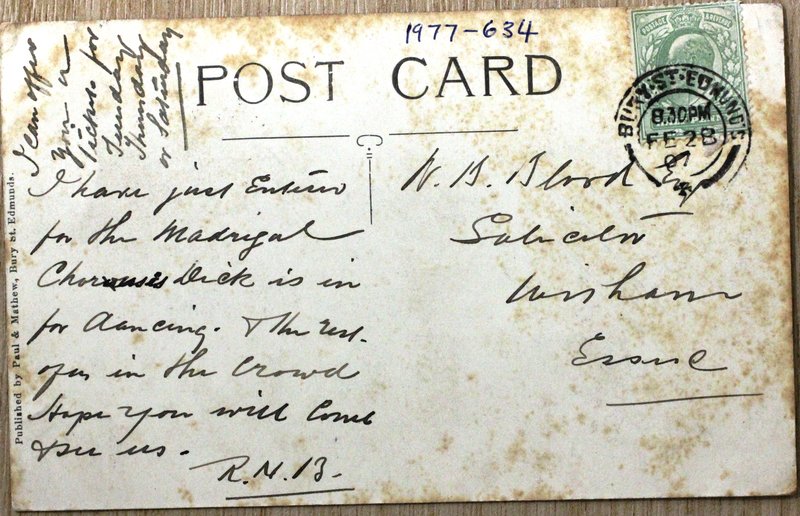 1977-634
POST CARD
I can offer
you a
Tickets for
Tuesday
Thursday
or Saturday
I have just Entered
for the Madrigal
Choruses Dick is in
for dancing. & the rest
of us in the Crowd
Hope you will Come
& see us.
R.N.B.
W. B. Blood Esq
Solicitor
Witham
Essex
POSTAGE REVENUE
BURY ST. EDMUNDS
8.30PM
FE 28
07
Published by Paul & Mathew, Bury St. Edmunds.